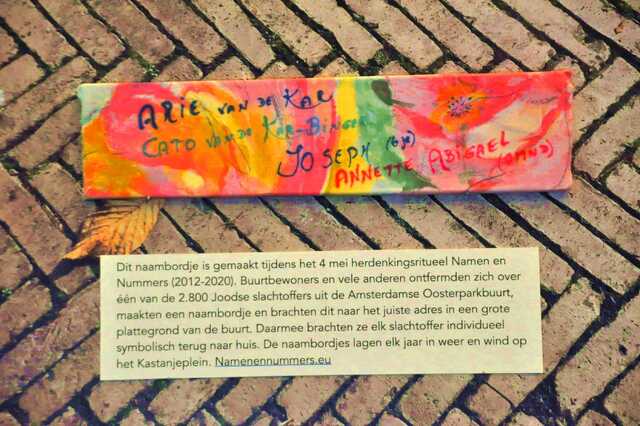 ARIE VAN DE KAR
CATO VAN DE KAR-BINGER
JOSEPH (6jr)
ANNETTE ABIGAEL
Dit naambordje is gemaakt tijdens het 4 mei herdenkingsritueel Namen en
Nummers (2012-2020). Buurtbewoners en vele anderen ontfermden zich over
één van de 2.800 Joodse slachtoffers uit de Amsterdamse Oosterparkbuurt,
maakten een naambordje en brachten dit naar het juiste adres in een grote
plattegrond van de buurt. Daarmee brachten ze elk slachtoffer individueel
symbolisch terug naar huis. De naambordjes lagen elk jaar in weer en wind op
het Kastanjeplein. Namenennummers.eu